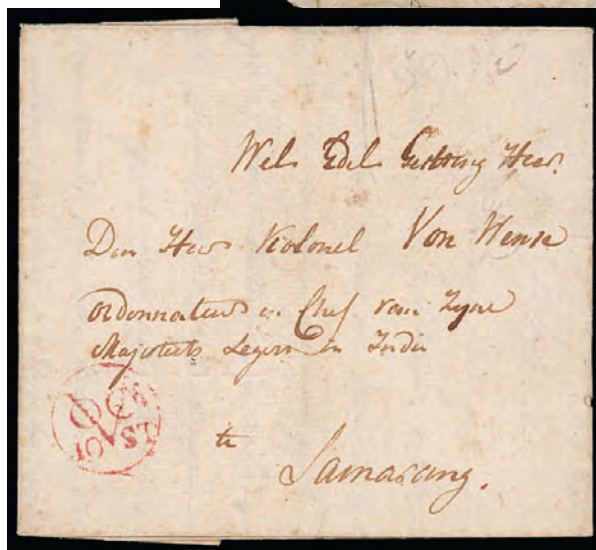 Wel Edel Gestreng Heer
Den Heer Kolonel Von Wense
Ordonnateur en Chef van Zyne
Majesteits Legers in Indie
te
Samarang.